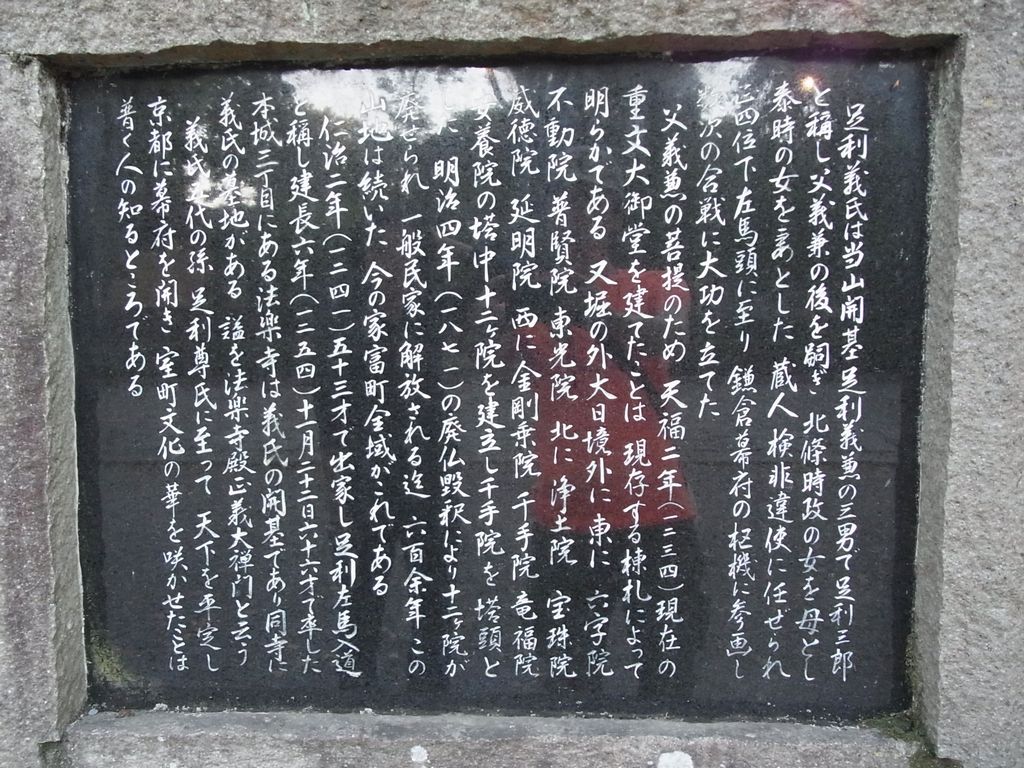 足利義氏は当山開基足利義兼の三男で足利三郎
と称し父義兼の後を嗣ぎ 北條時政の女を母とし
泰時の女を妻とした 蔵人検非違使に任ぜられ
四位下左馬頭に至り 鎌倉幕府の枢機に参画し
次の合戦に大功を立てた
父義兼の菩提のため 天福二年(一二三四)現在の
重文大御堂を建てたことは 現存する棟札によって
明らかである 又堀の外大日境外に東に 六字院
不動院 普賢院 東光院 北に 浄土院 宝珠院
威徳院 延明院 西に金剛乗院 千手院 竜福院
安養院の塔中十二ヶ院を建立し千手院を 塔頭と
した 明治四年(一八七一)の廃仏毀釈により十二ヶ院が
廃せられ 一般民家に解放される迄 六百余年 この
山地は続いた 今の家富町全域がこれである
仁治二年(一二四一)五十三才で出家し足利左馬入道
と称し建長六年(一二五四)十一月二十二日六十六才で卒した
本城三丁目にある法楽寺は義氏の開基であり同寺に
義氏の墓地がある 謚を法楽寺殿正義大禅門と云う
義氏 代の孫 足利尊氏に至って 天下を平定し
京都に幕府を開き 室町文化の華を咲かせたことは
普く人の知るところである